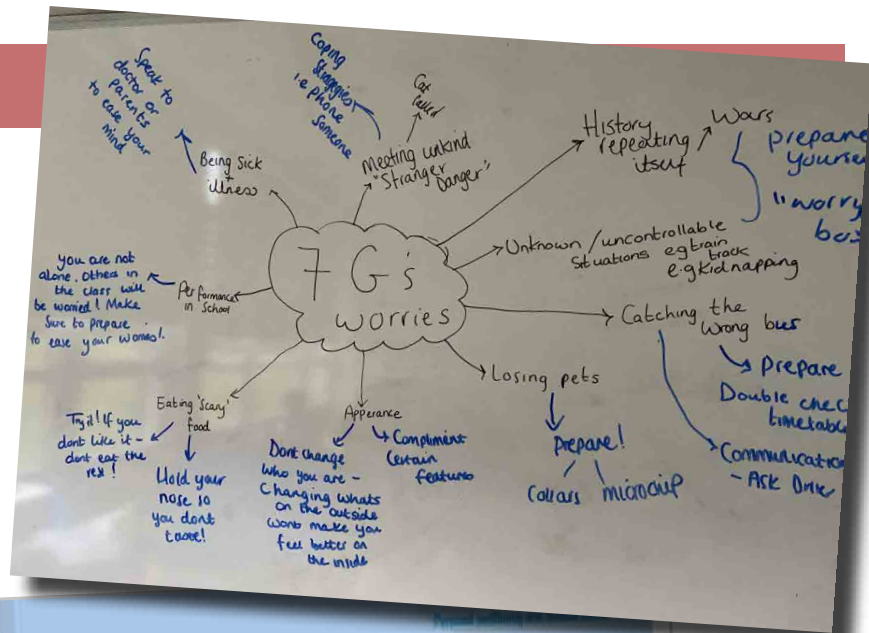 7 G's
worries
Being sick
+
illness
Speak to
doctor or
parents
to ease your
mind
Meeting unkind
"Stranger
Danger"
Coping
i.e phone
someone
Cat
called
History
repeating
itself
Wars
prepare
"worry
Unknown / uncontrollable
situations eg train
track
e.g kidnapping
Catching the
wrong bus
Prepare
Double
Communication
- Ask Driver
Losing pets
Prepare!
Collars
microchip
Apperance
Compliment
Certain
features
Dont change
who you are -
Changing whats
on the outside
wont make you
feel better on
the inside
Eating 'scary'
food
Try it! If you
dont like it -
dont eat the
rest!
Hold your
nose so
you dont
taste!
Performances
in School
you are not
alone. Others in
the class will
be worried! Make
Sure to prepare
to ease your worries!